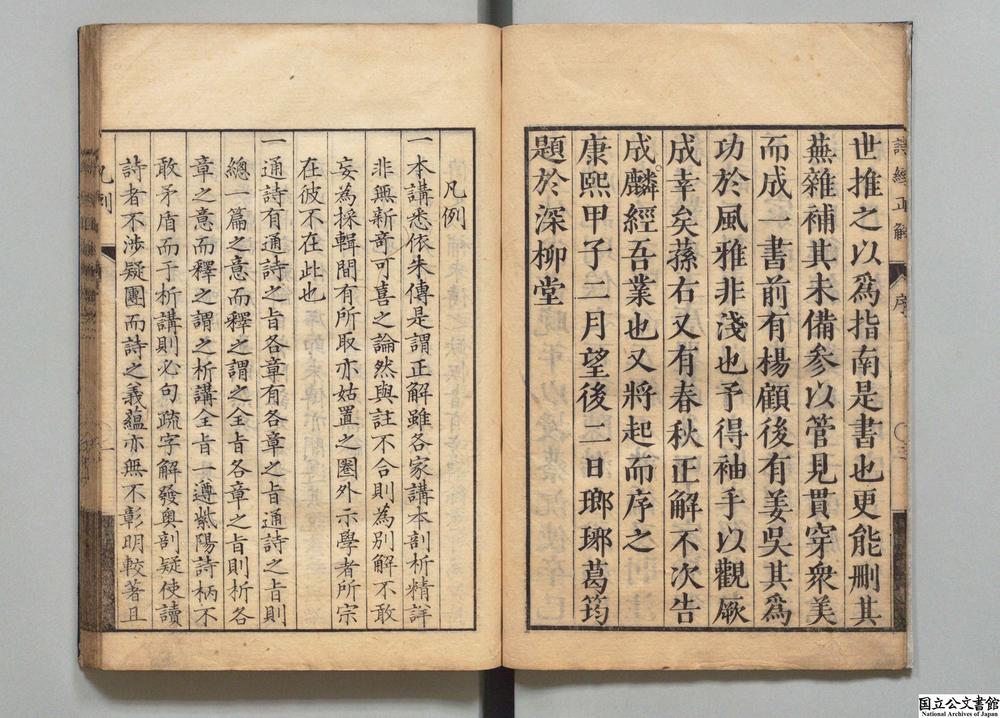 詩經正解 序
世推之以爲指南是書也更能刪其
蕪雜補其未備參以管見貫穿衆美
而成一書前有楊顧後有姜吳其爲
功於風雅非淺也予得袖手以觀厥
成幸矣蓀右又有春秋正解不次告
成麟經吾業也又將起而序之
康熙甲子二月望後二日瑯琊葛筠
題於深柳堂
凡例
一本講悉依朱傳是謂正解雖各家講本剖析精詳
非無新奇可喜之論然與註不合則為別解不敢
妄為採輯間有所取亦姑置之圈外示學者所宗
在彼不在此也
一通詩有通詩之旨各章有各章之旨通詩之旨則
總一篇之意而釋之謂之全旨各章之旨則析各
章之意而釋之謂之析講全旨一遵紫陽詩柄不
敢矛盾而于析講則必句疏字解發奧剖疑使讀
詩者不涉疑團而詩之義蘊亦無不彰明較著且
凡例
国立公文書館
National Archives of Japan